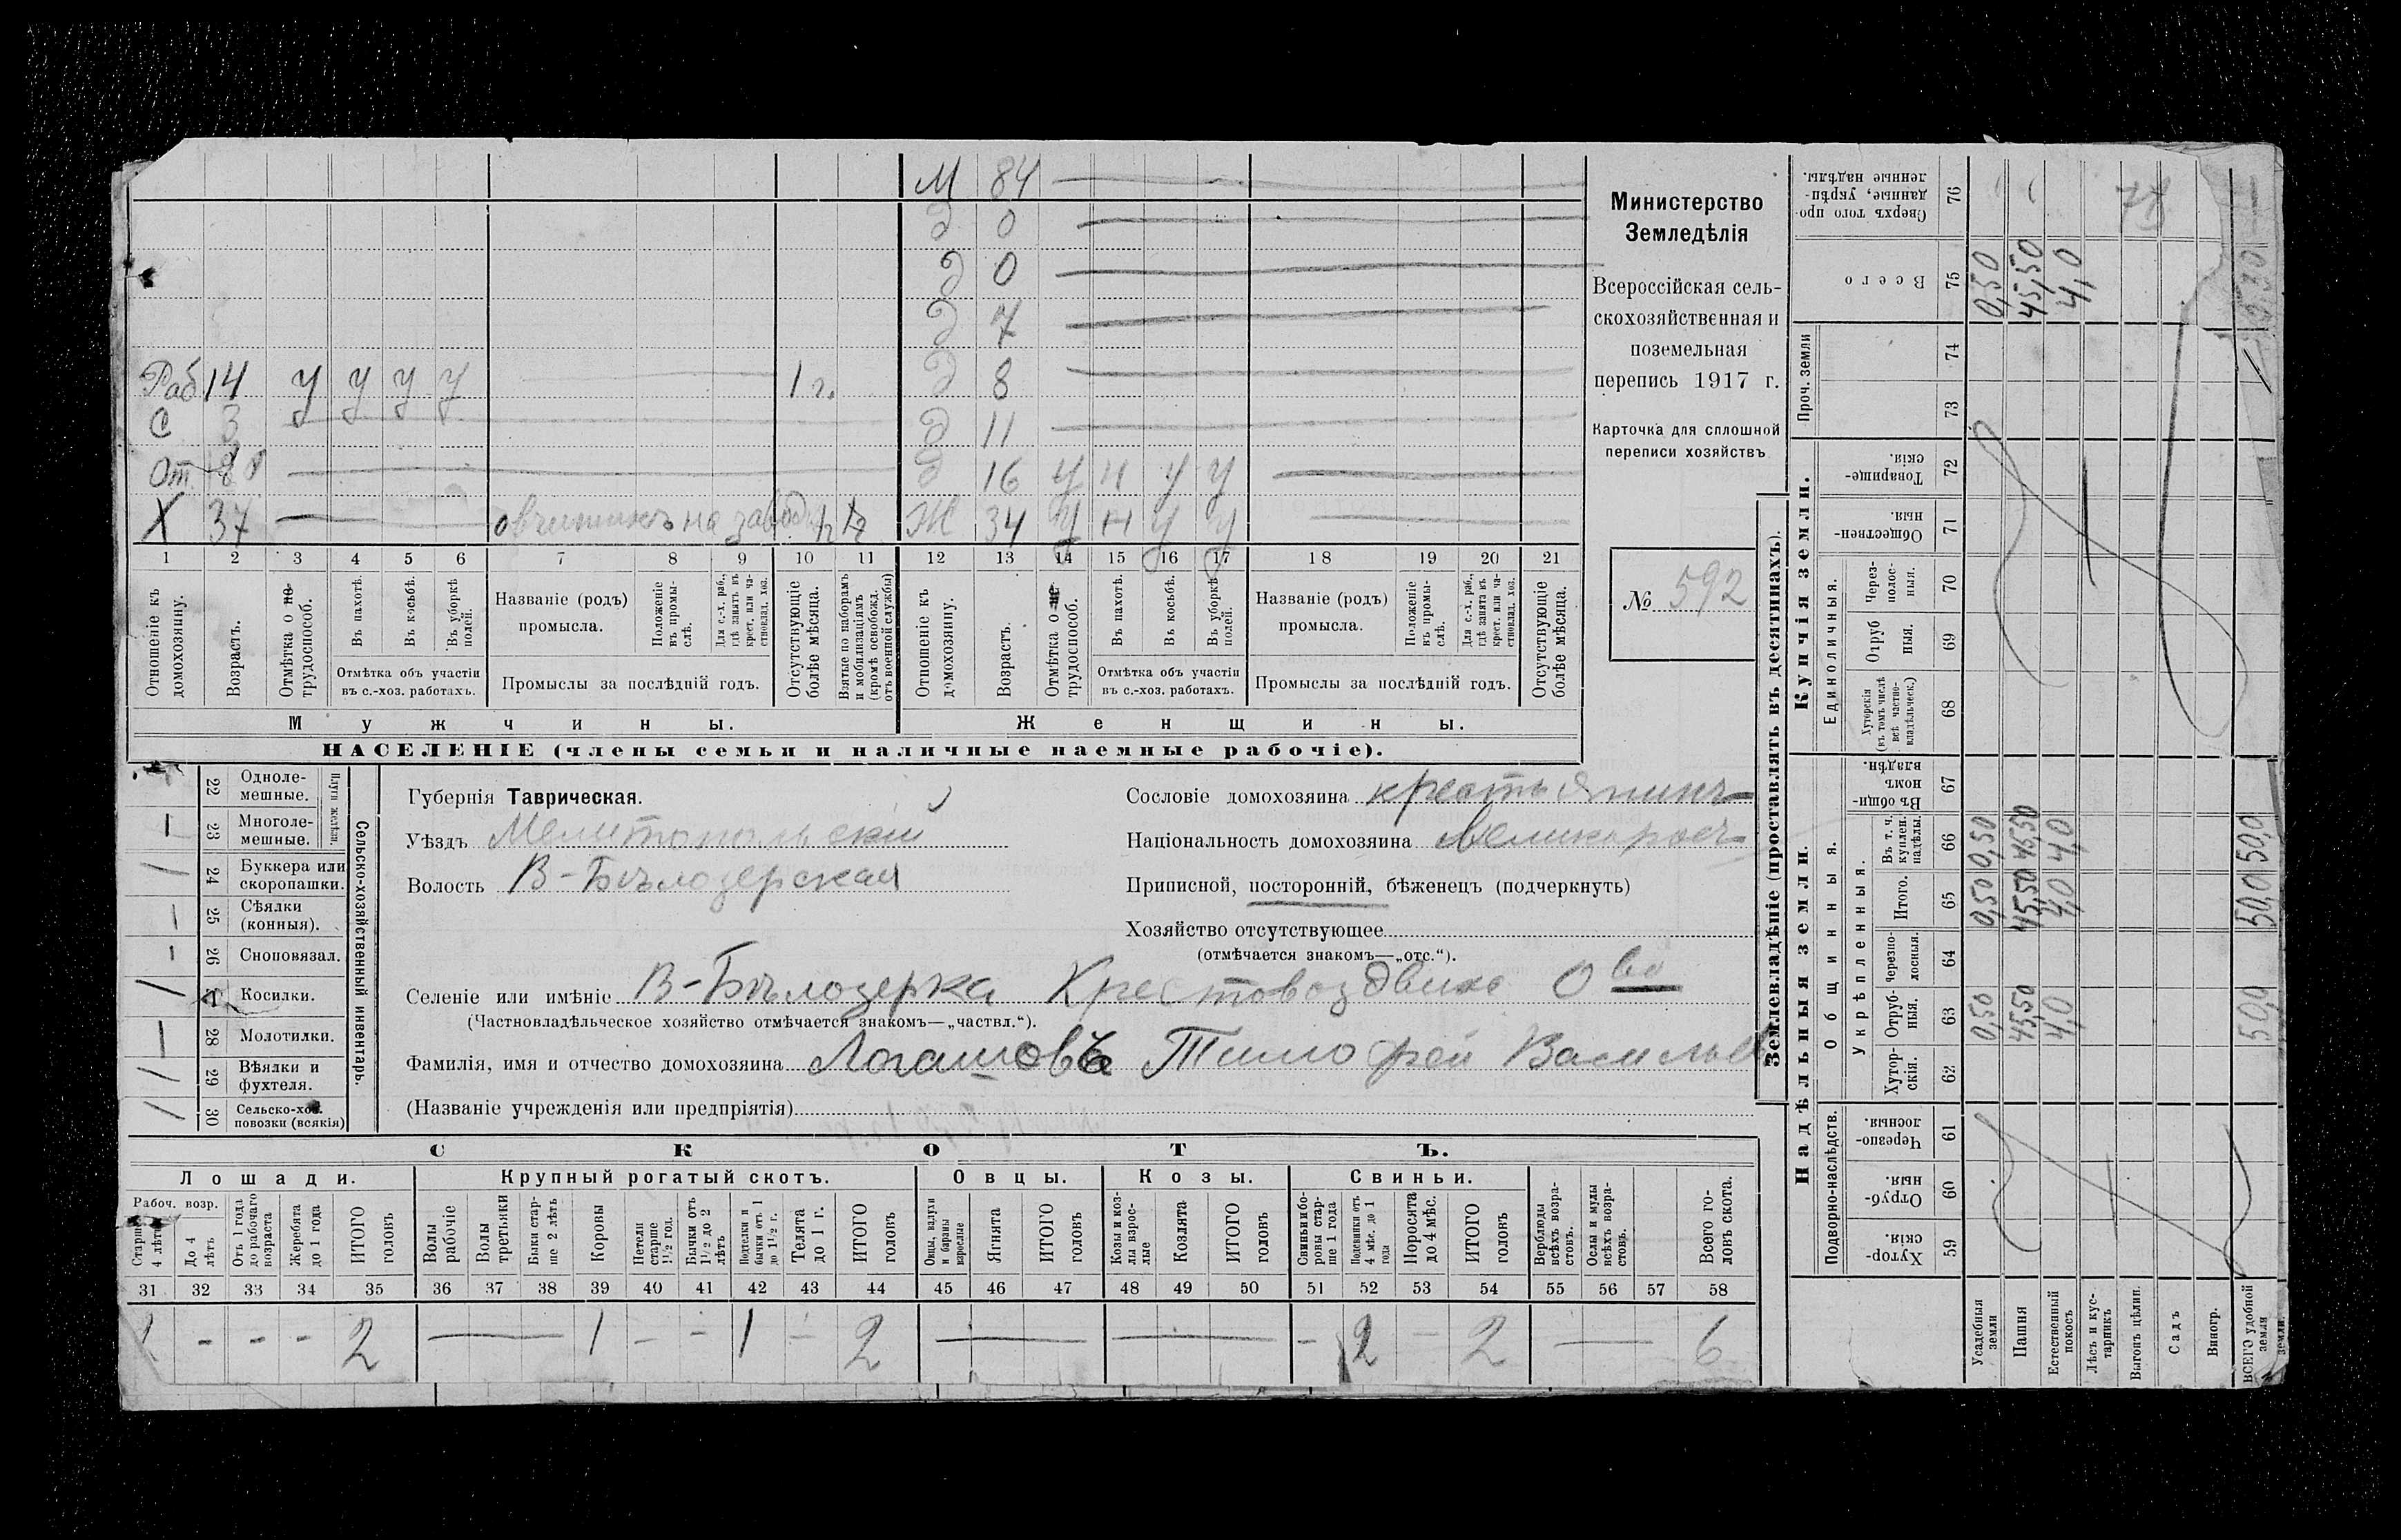 М 84
д 0
д 0
д 7
Раб 14 у у у у 1 г. д 8
С 3 д 11
От. д 16 у н у у
Х 37 Ж 34 у н у у
1 2 3 4 5 6 7 8 9 10 11 12 13 14 15 16 17 18 19 20 21
Отношеніе къ домохозяину.
Возрастъ.
Отмѣтка о трудоспособ.
Въ пахотѣ.
Въ косьбѣ.
Въ уборкѣ полей.
Отмѣтка объ участіи въ с.-хоз. работахъ.
Названіе (родъ) промысла.
Положеніе въ промыслѣ.
Для с.-х. раб., гдѣ занятъ въ крест. или частновлад. хоз.
Промыслы за послѣдній годъ.
Отсутствующіе болѣе мѣсяца.
Взятые по наборамъ и мобилизаціямъ (кромѣ освобожд. отъ военной службы)
Отношеніе къ домохозяину.
Возрастъ.
Отмѣтка о трудоспособ.
Въ пахотѣ.
Въ косьбѣ.
Въ уборкѣ полей.
Отмѣтка объ участіи въ с.-хоз. работахъ.
Названіе (родъ) промысла.
Положеніе въ промыслѣ.
Для с.-х. раб., гдѣ занята въ крест. или частновлад. хоз.
Промыслы за послѣдній годъ.
Отсутствующіе болѣе мѣсяца.
Мужчины. Женщины.
НАСЕЛЕНІЕ (члены семьи и наличные наемные рабочіе).
Министерство
Земледѣлія
Всероссійская сель-
скохозяйственная и
поземельная
перепись 1917 г.
Карточка для сплошной
переписи хозяйствъ
№ 592
Сельско-хозяйственный инвентарь.
Плуги желѣзн.
22 Одноле-
мешные.
23 Многоле-
мешные.
24 Буккера или
скоропашки.
25 Сѣялки
(конныя).
26 Сноповязал.
Косилки.
28 Молотилки.
29 Вѣялки и
фухтеля.
30 Сельско-хоз.
повозки (всякія)
Губернія Таврическая.
Уѣздъ Мелитопольскій
Волость В-Бѣлозерская
Сословіе домохозяина крестьянинъ
Національность домохозяина великоросъ
Приписной, посторонній, бѣженецъ (подчеркнуть)
Хозяйство отсутствующее
(отмѣчается знакомъ—„отс.“).
Селеніе или имѣніе В-Бѣлозерка Крестовоздвиж О во
(Частновладѣльческое хозяйство отмѣчается знакомъ—„частвл.“).
Фамилія, имя и отчество домохозяина Логашовъ Тимофей Васильев
(Названіе учрежденія или предпріятія)
СКОТЪ.
Лошади. Крупный рогатый скотъ. Овцы. Козы. Свиньи.
Рабоч. возр.
Старше 4 лѣтъ
До 4 лѣтъ
Отъ 1 года до рабочаго возраста
Жеребята до 1 года
ИТОГО головъ
Волы рабочіе
Волы третьяки
Быки старше 2 лѣтъ
Коровы
Нетели старше 1½ год.
Бычки отъ 1½ до 2 лѣтъ
Подтелки и бычки отъ 1 до 1½ г.
Телята до 1 г.
ИТОГО головъ
Овцы, валухи и бараны взрослые
Ягнята
ИТОГО головъ
Козы и козлы взрослые
Козлята
ИТОГО головъ
Свиньи и боровы старше 1 года
Подсвинки отъ 4 мѣс. до 1 года
Поросята до 4 мѣс.
ИТОГО головъ
Верблюды всѣхъ возрастовъ.
Ослы и мулы всѣхъ возрастовъ.
Всего головъ скота.
31 32 33 34 35 36 37 38 39 40 41 42 43 44 45 46 47 48 49 50 51 52 53 54 55 56 57 58
- - - 2 — 1 - - 1 - 2 — — - 2 - 2 — 6
Землевладѣніе (проставлять въ десятинахъ).
Надѣльныя земли.
Купчія земли.
Подворно-наслѣдств.
Общинныя.
Укрѣпленныя.
Единоличныя.
Проч. земли
59 Хуторскія.
60 Отрубныя.
61 Черезполосныя.
62 Хуторскія.
63 Отрубныя.
64 Черезполосныя.
65 Итого.
66 Въ т. ч. куплен. надѣлы.
67 Въ общинномъ владѣн.
68 Хуторскія (въ томъ числѣ всѣ частновладѣльческ.)
69 Отрубныя.
70 Черезполосныя.
71 Общественныя.
72 Товарищескія.
73
74
75 Всего
76 Сверхъ того проданные, укрѣпленные надѣлы.
Усадебныя земли 0,50 0,50 0,50 0,50
Пашня 45,50 45,50 45,50 45,50
Естественный покосъ 4,0 4,0 4,0 4,0
Лѣсъ и кустарникъ
Выгонъ цѣлин.
Садъ
Виногр.
ВСЕГО удобной земли 50,0 50,0 50,0